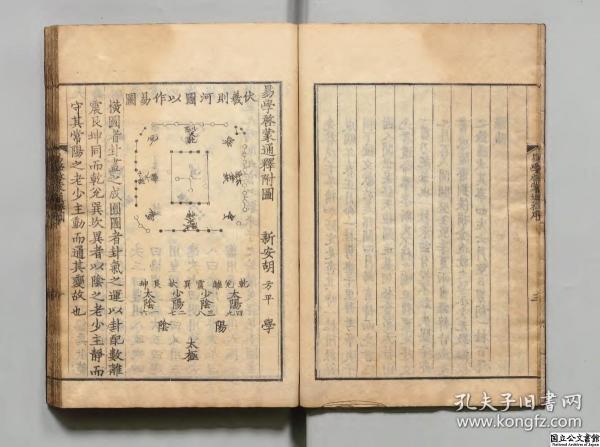 易學啓蒙通釋附圖
新安胡 方平 學
伏羲則河圖以作易圖
乾兌離震巽坎艮坤
太陽 少陰 少陽 太陰
陽 陰
太極
橫圖者卦畫之成圓圖者卦氣之運以卦配數離
震艮坤同而乾兌巽坎異者以陰之老少主靜而
守其常陽之老少主動而通其變故也
三
孔夫子旧书网
www.kongfz.com
国立公文書館
National Archives of Japan